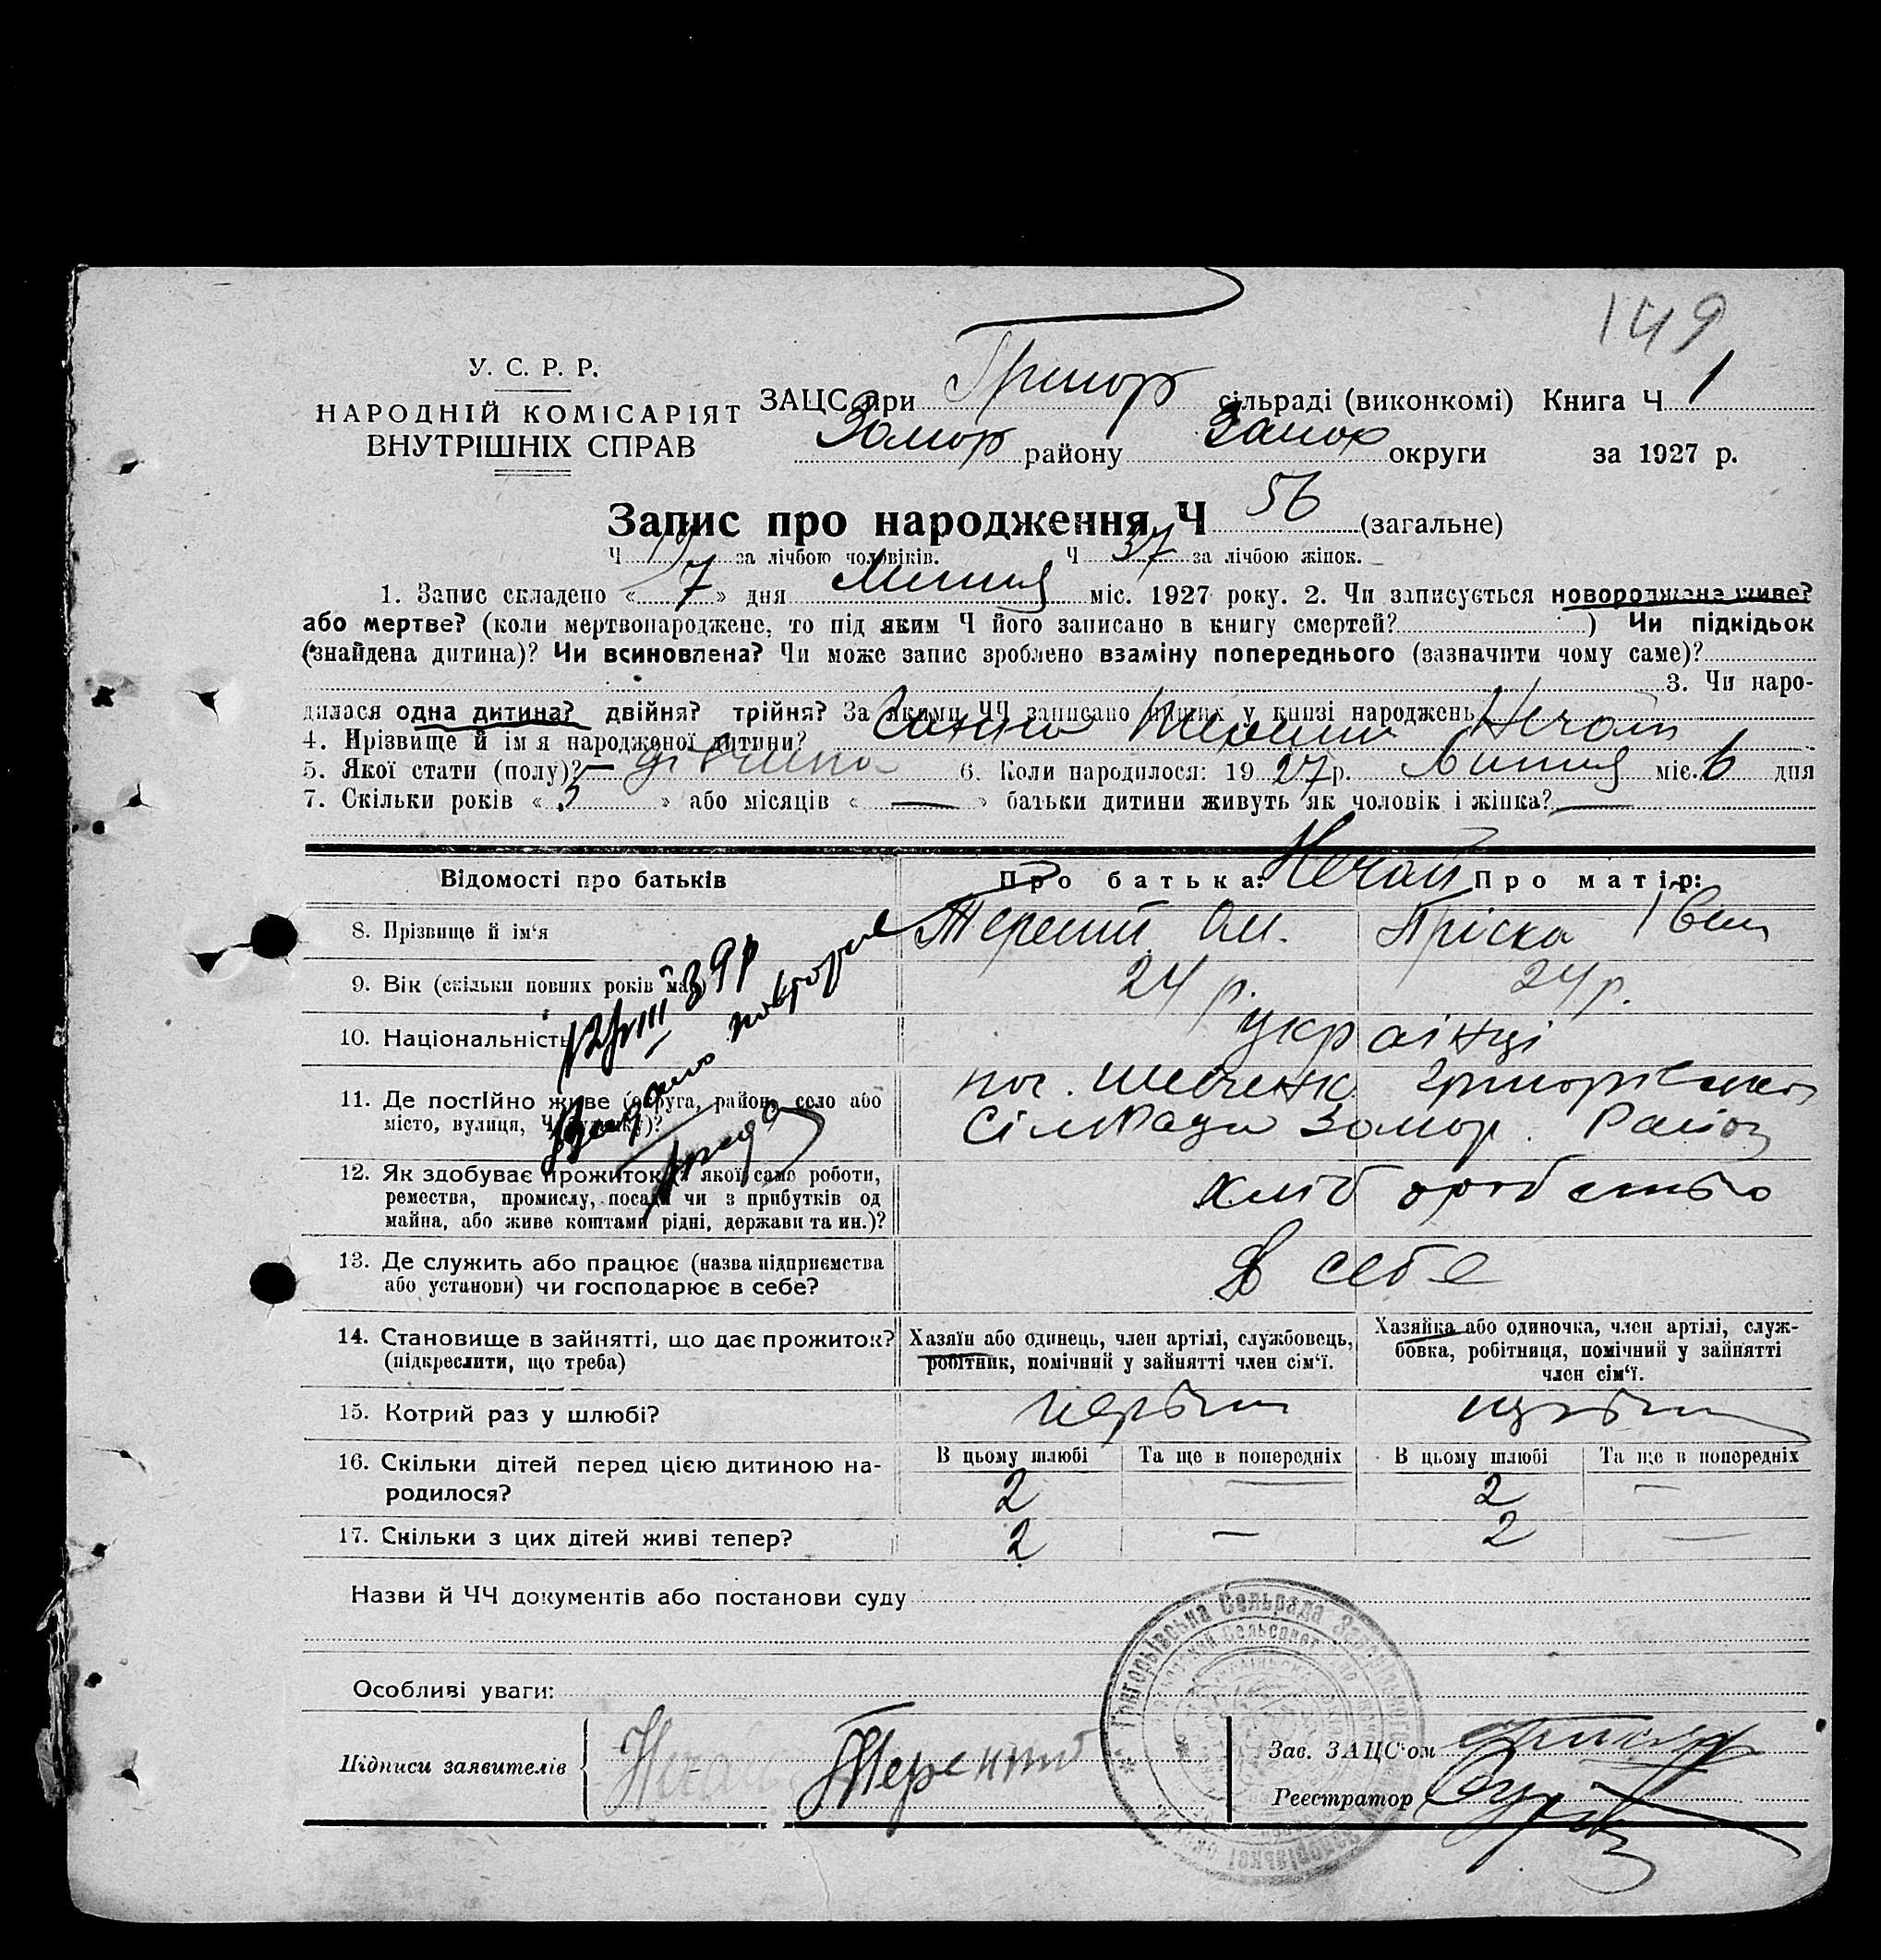 149
У. С. Р. Р.
НАРОДНІЙ КОМІСАРІЯТ
ВНУТРІШНІХ СПРАВ
ЗАЦС при Григор сільраді (виконкомі) Книга Ч 1
району Запор округи за 1927 р.
Запис про народження Ч 56 (загальне)
Ч 19 за лічбою чоловіків. Ч 37 за лічбою жінок.
1. Запис складено « 7 » дня Липня міс. 1927 року. 2. Чи записується новороджене живе?
або мертве? (коли мертвонароджене, то під яким Ч його записано в книгу смертей? ) Чи підкідьок
(знайдена дитина)? Чи всиновлена? Чи може запис зроблено взаміну попереднього (зазначити чому саме)?
3. Чи наро-
дилася одна дитина? двійня? трійня? За якими ЧЧ записано інших у книзі народжень
4. Прізвище й ім'я народженої дитини? Ганна Нечай
5. Якої стати (полу)? — дівчина 6. Коли народилося: 1927 р. Липня міс. 6 дня
7. Скільки років « 3 » або місяців « — » батьки дитини живуть як чоловік і жінка? —
Відомості про батьків Про батька: Нечай Про матір:
8. Прізвище й ім'я Ом. Пріска Іван
9. Вік (скільки повних років має) 24 р. 24 р.
10. Національність українці
11. Де постійно живе (округа, район, село або
місто, вулиця, Ч будинку)?
пос. Шевченк. Григорівської
Сільради Запор. Район
12. Як здобуває прожиток (з якої само роботи,
ремества, промислу, посади чи з прибутків од
майна, або живе коштами рідні, держави та ин.)?
хліборобство
13. Де служить або працює (назва підприємства
або установи) чи господарює в себе?
В себе
14. Становище в зайнятті, що дає прожиток?
(підкреслити, що треба)
Хазяїн або одинець, член артілі, службовець,
робітник, помічний у зайнятті член сім'ї.
Хазяйка або одиночка, член артілі, служ-
бовка, робітниця, помічний у зайнятті
член сім'ї.
15. Котрий раз у шлюбі?
16. Скільки дітей перед цією дитиною на-
родилося?
В цьому шлюбі Та ще в попередніх В цьому шлюбі Та ще в попередніх
2 — 2 —
17. Скільки з цих дітей живі тепер? 2 — 2 —
Видано повторне
Назви й ЧЧ документів або постанови суду
Особливі уваги:
Підписи заявителів Нечай
Зав. ЗАЦС'ом
Реєстратор
Григорьівська Сельрада